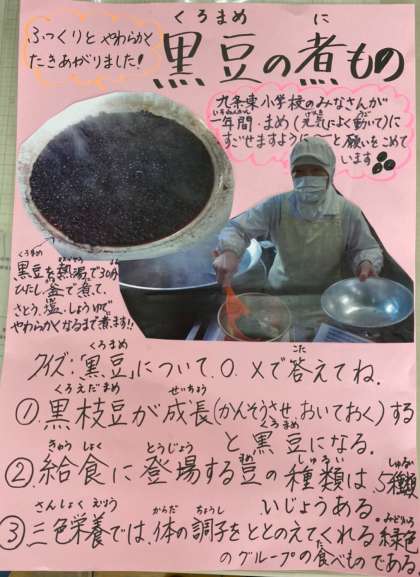 ふっくりと やわらかく
たきあがりました!
くろまめ に
黒豆の煮もの
九条東小学校のみなさんが
いちねんかん げんき うご
一年間、まめ(元気によく動いて)に
すごせますように〜と 願いをこめて
います
くろまめ ねっとう
黒豆を熱湯で30分
ひたし、釜で煮て、
さとう、塩、しょうゆで
やわらかくなるまで煮ます!!
くろまめ こた
クイズ:「黒豆」について、○、×で答えてね。
くろえだまめ せいちょう
① 黒枝豆が成長(かんそうさせ、おいておく)する
くろまめ
と黒豆になる。
きゅうしょく とうじょう まめ しゅるい しゅるい
② 給食に登場する豆の種類は、5種類
いじょうある。
さんしょくえいよう からだ ちょうし みどりいろ
③ 三色栄養では、体の調子をととのえてくれる緑色
た
のグループの食べものである